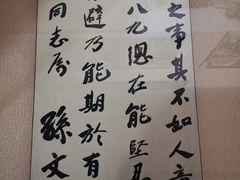 之事其不如人意
八九總在能堅忍
避乃能期於有
同志屬
孫文